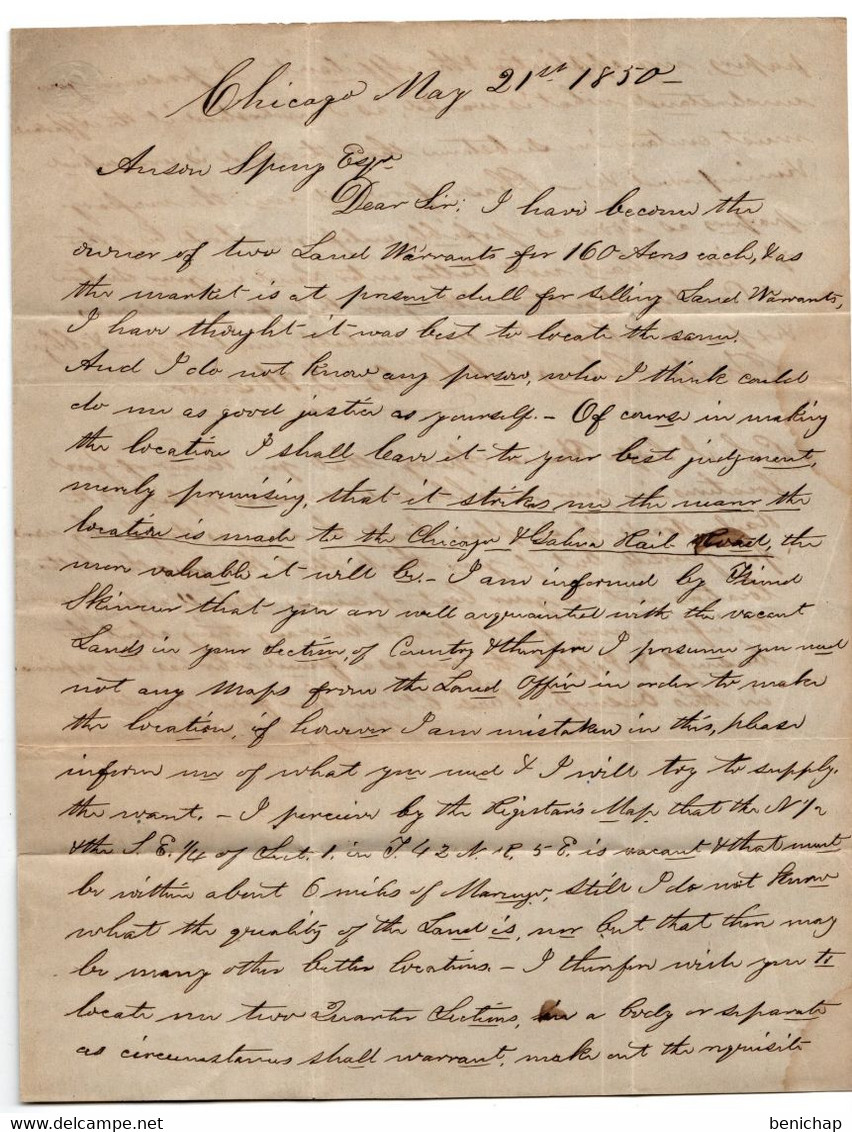 Chicago May 21st 1850
Anson Sperry Esqr
Dear Sir; I have become the
owner of two Land Warrants for 160 Acres each, & as
the market is at present dull for selling Land Warrants,
I have thought it was best to locate the same.
And I do not know any person, who I think could
do me as good justice as yourself. - Of course in making
the location I shall leave it to your best judgment,
merely premising, that it strikes me the nearer the
location is made to the Chicago & Galena Rail Road, the
more valuable it will be. - I am informed by Friend
Skinner that you are well acquainted with the vacant
Lands in your Section of Country & therefore I presume you need
not any Maps from the Land Office in order to make
the location, if however I am mistaken in this, please
inform me of what you need & I will try to supply.
the want. - I perceive by the Registar's Map that the N 1/2
& the S. E. 1/4 of Sect. 1. in T. 42 N. R. 5 E. is vacant & that must
be within about 6 miles of Marengo, still I do not know
what the quality of the Land is, nor but that there may
be many other better locations. - I therefore wish you to
locate me two Quarter Sections, in a body or separate
as circumstances shall warrant, make out the requisite
benichap